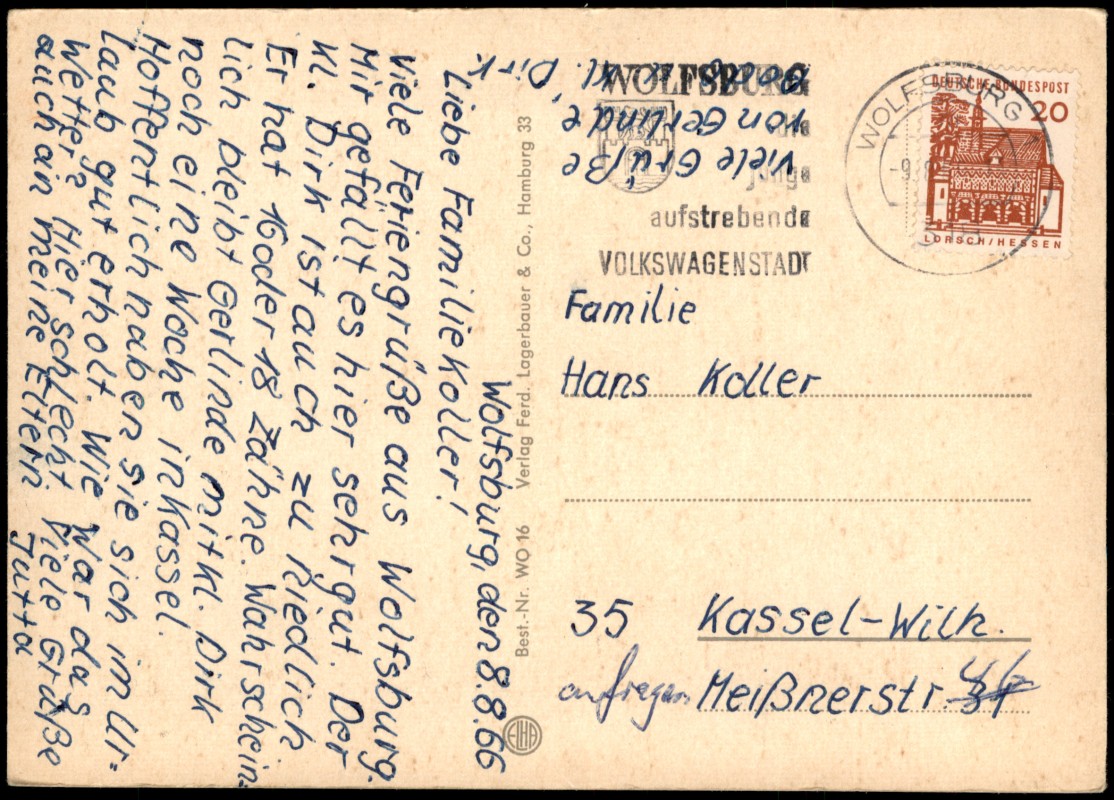 Wolfsburg, den 8.8.66
Liebe Familie Koller!
Viele Feriengrüße aus Wolfsburg.
Mir gefällt es hier sehr gut. Der
kl. Dirk ist auch zu niedlich
Er hat 16 oder 18 Zähne. Wahrschein-
lich bleibt Gerlinde mit kl. Dirk
noch eine Woche in Kassel.
Hoffentlich haben sie sich im Ur=
laub gut erholt. Wie war das
Wetter? Hier schlecht. Viele Grüße
auch an meine Eltern
Jutta
Viele Grüße
von Gerlinde
u. kl. Dirk
Best.-Nr. WO 16 Verlag Ferd. Lagerbauer & Co., Hamburg 33
ELHA
WOLFSBURG
die
junge
aufstrebende
VOLKSWAGENSTADT
WOLFSBURG
-9.8.
DEUTSCHE BUNDESPOST
20
LORSCH/HESSEN
Familie
Hans Koller
35 Kassel-Wilh.
Meißnerstr. 46